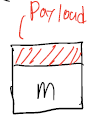 Payload
m